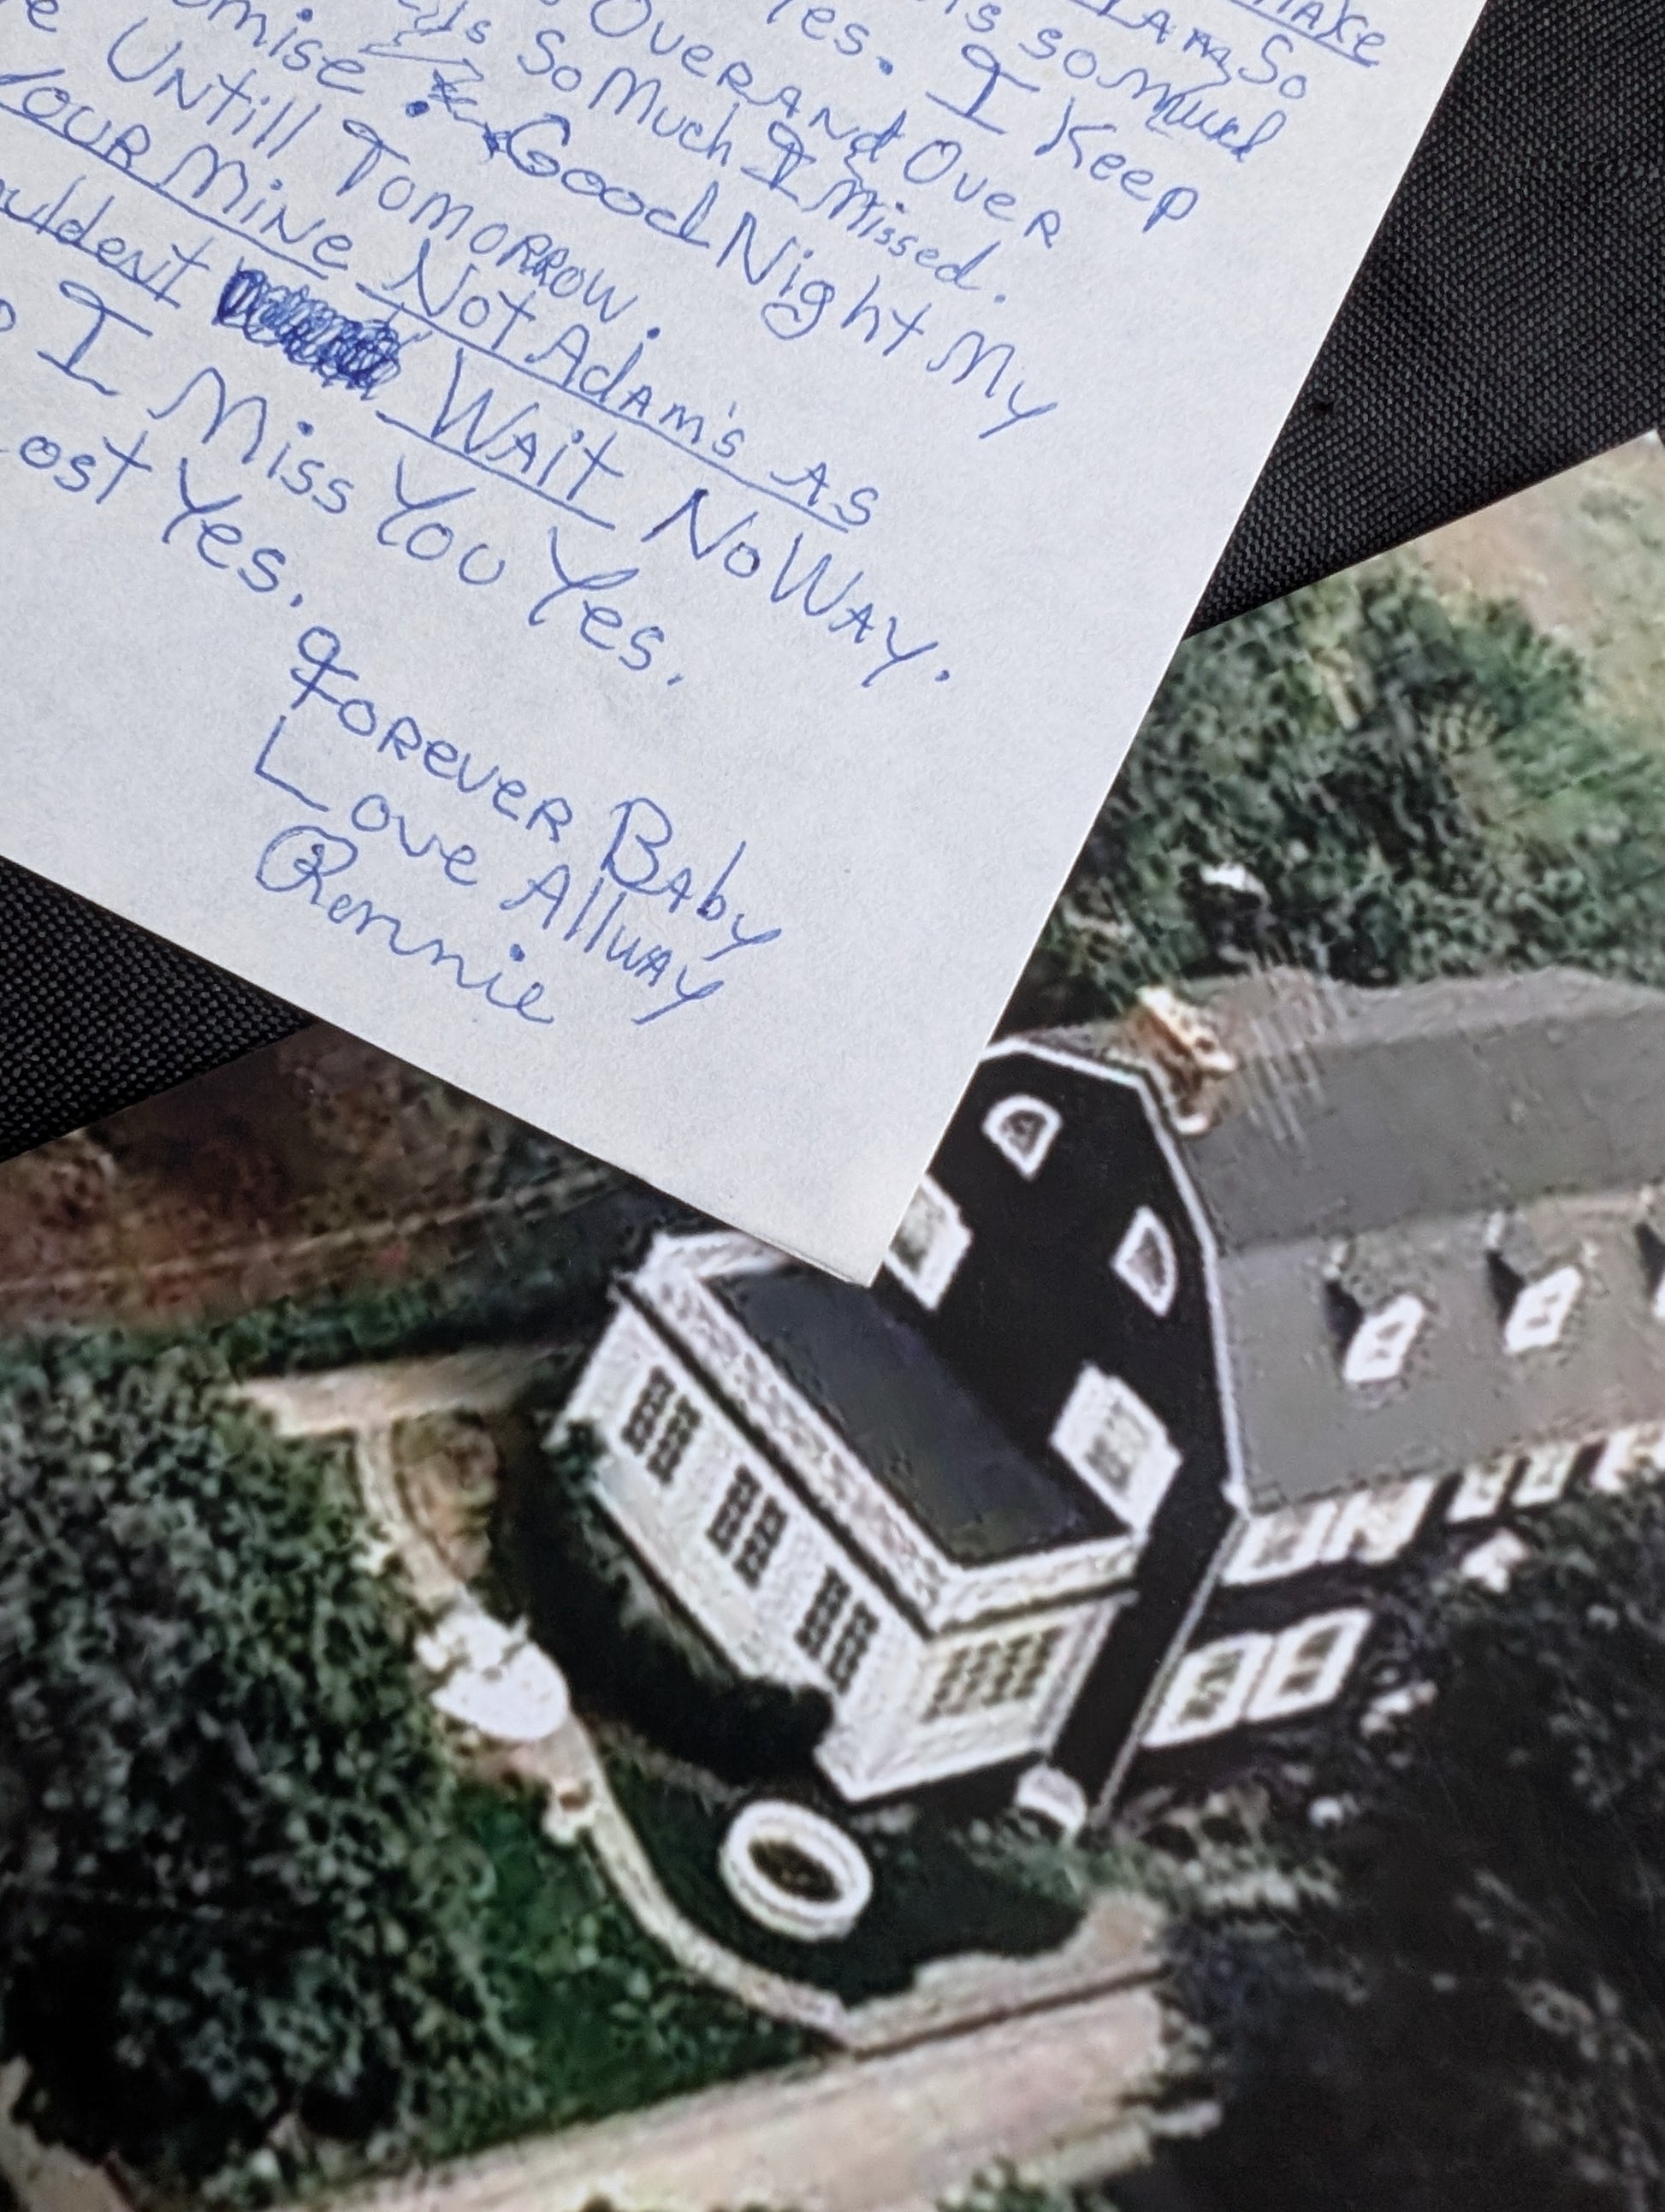 MAKE
I AM So
so Much
Yes. I Keep
Over And Over
So Much I Missed.
Good Night My
Untill Tomorrow.
Your Mine Not Adam's As
Wait No Way.
I Miss You Yes.
Yes.
Forever Baby
Love Allway
Ronnie